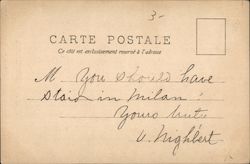 3-
CARTE POSTALE
Ce côté est exclusivement réservé à l'adresse
M You should have
staid in Milan
Yours truly